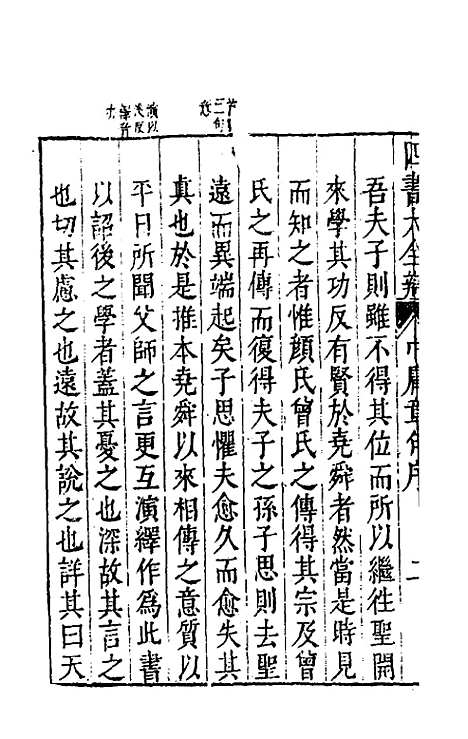 四書大全辯 中庸章句序 二
吾夫子則雖不得其位而所以繼往聖開
來學其功反有賢於堯舜者然當是時見
而知之者惟顏氏曾氏之傳得其宗及曾
氏之再傳而復得夫子之孫子思則去聖
遠而異端起矣子思懼夫愈久而愈失其
真也於是推本堯舜以來相傳之意質以
平日所聞父師之言更互演繹作爲此書
以詔後之學者蓋其憂之也深故其言之
也切其慮之也遠故其說之也詳其曰天